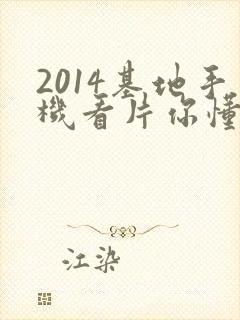 2014基地手
機看片你懂
江染